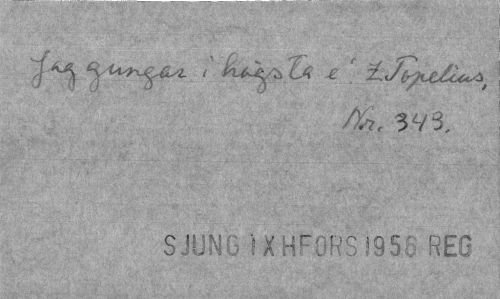 Jag gungar i högsta e' Z. Topelius,
Nr. 343.
SJUNG IX HFORS 1956 REG